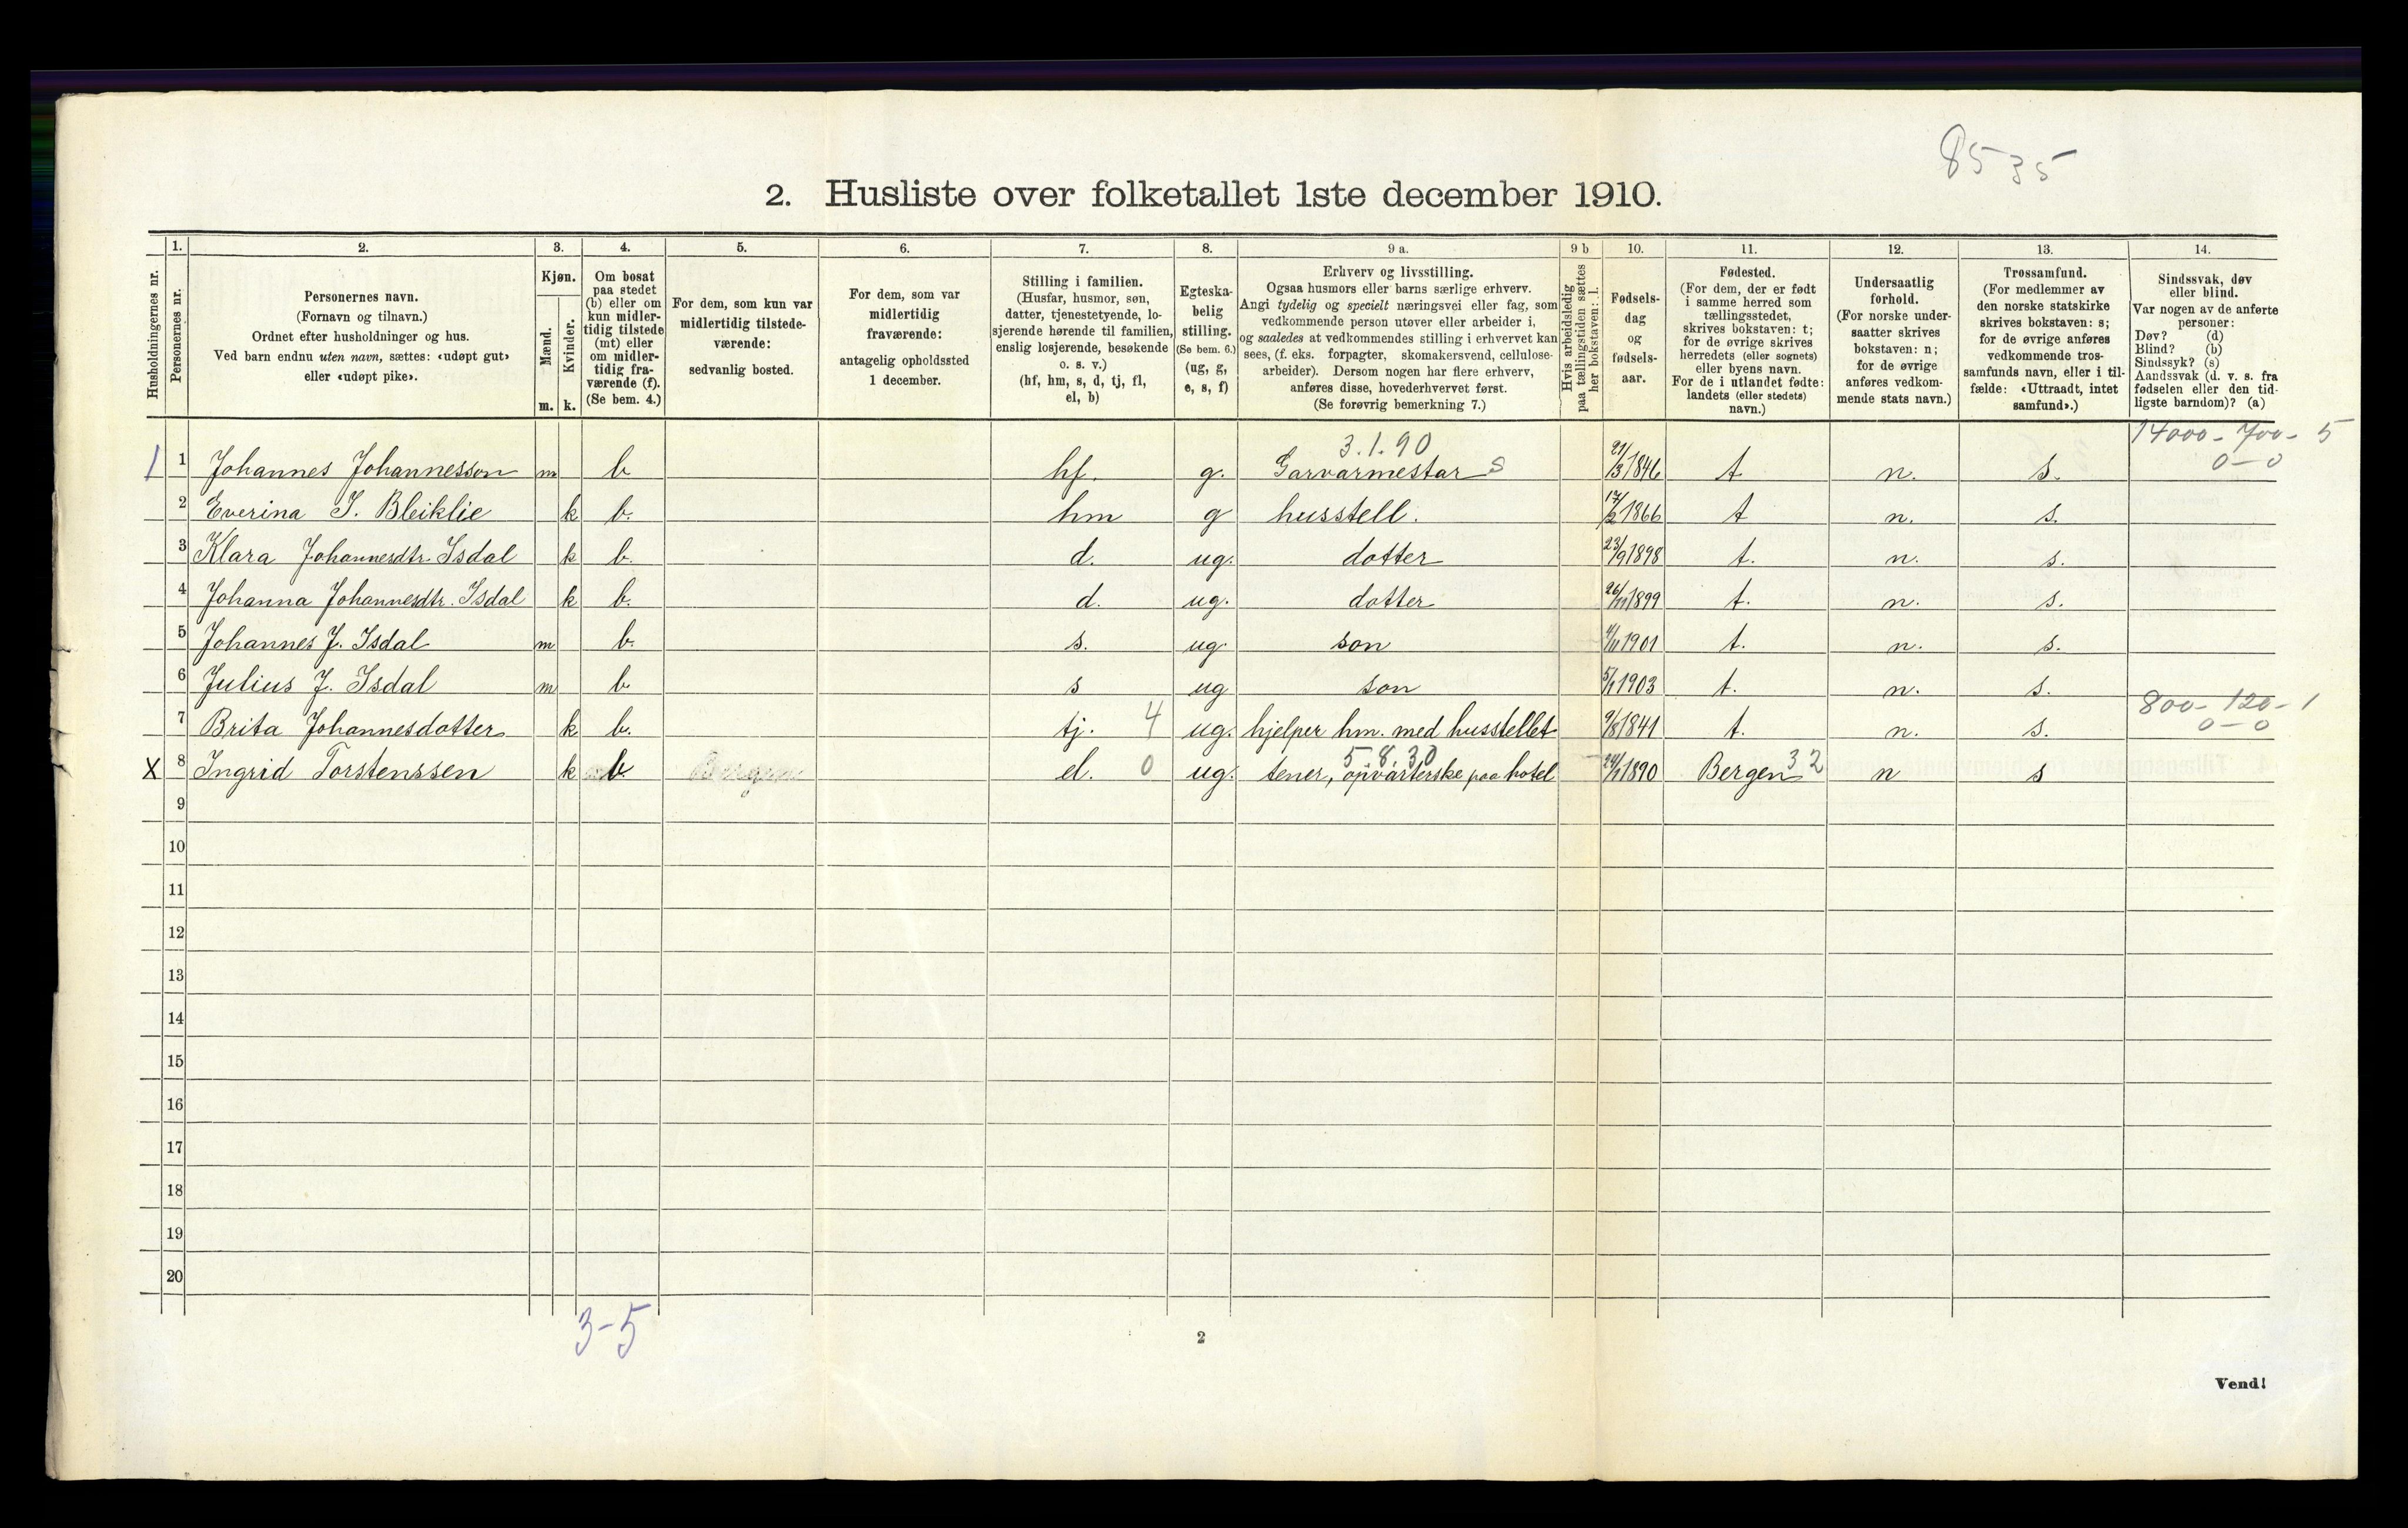 8535
2. Husliste over folketallet 1ste december 1910.
1. 2. 3. 4. 5. 6. 7. 8. 9 a. 9 b 10. 11. 12. 13. 14.
Husholdningernes nr.
Personernes nr.
Personernes navn.
(Fornavn og tilnavn.)
Ordnet efter husholdninger og hus.
Ved barn endnu uten navn, sættes: «udøpt gut»
eller «udøpt pike».
Kjøn.
Mænd.
Kvinder.
m. k.
Om bosat
paa stedet
(b) eller om
kun midler-
tidig tilstede
(mt) eller
om midler-
tidig fra-
værende (f).
(Se bem. 4.)
For dem, som kun var
midlertidig tilstede-
værende:
sedvanlig bosted.
For dem, som var
midlertidig
fraværende:
antagelig opholdssted
1 december.
Stilling i familien.
(Husfar, husmor, søn,
datter, tjenestetyende, lo-
sjerende hørende til familien,
enslig losjerende, besøkende
o. s. v.)
(hf, hm, s, d, tj, fl,
el, b)
Egteska-
belig
stilling.
(Se bem. 6.)
(ug, g,
e, s, f)
Erhverv og livsstilling.
Ogsaa husmors eller barns særlige erhverv.
Angi tydelig og specielt næringsvei eller fag, som
vedkommende person utøver eller arbeider i,
og saaledes at vedkommendes stilling i erhvervet kan
sees, (f. eks. forpagter, skomakersvend, cellulose-
arbeider). Dersom nogen har flere erhverv,
anføres disse, hovederhvervet først.
(Se forøvrig bemerkning 7.)
Hvis arbeidsledig
paa tællingstiden sættes
her bokstaven: l.
Fødsels-
dag
og
fødsels-
aar.
Fødested.
(For dem, der er født
i samme herred som
tællingsstedet,
skrives bokstaven: t;
for de øvrige skrives
herredets (eller sognets)
eller byens navn.
For de i utlandet fødte:
landets (eller stedets)
navn.)
Undersaatlig
forhold.
(For norske under-
saatter skrives
bokstaven: n;
for de øvrige
anføres vedkom-
mende stats navn.)
Trossamfund.
(For medlemmer av
den norske statskirke
skrives bokstaven: s;
for de øvrige anføres
vedkommende tros-
samfunds navn, eller i til-
fælde: «Uttraadt, intet
samfund».)
Sindssvak, døv
eller blind.
Var nogen av de anførte
personer:
Døv? (d)
Blind? (b)
Sindssyk? (s)
Aandssvak (d. v. s. fra
fødselen eller den tid-
ligste barndom)? (a)
3.1.90 14000 - 700 - 5
1 1 Johannes Johannesson m b hf. g. Garvarmestar s 21/3 1846 t n. s. 0-0
2 Everina I. Bleiklie k b. hm g husstell. 17/2 1866 t n. s.
3 Klara Johannesdtr. Isdal k b. d. ug. dotter 23/9 1898 t. n. s.
4 Johanna Johannesdtr. Isdal k b. d. ug. dotter 26/11 1899 t. n. s.
5 Johannes J. Isdal m b. s. ug. son 4/11 1901 t. n. s.
6 Julius J. Isdal m b. s ug son 5/1 1903 t. n. s.
800 - 120 - 1
7 Brita Johannesdotter k b. tj. 4 ug. hjelper hm. med husstellet 9/8 1841 t. n. s. 0-0
5 8 30
x 8 Ingrid Torstenssen k b Bergen el. 0 ug. tener, opvarterske paa hotel 24/1 1890 Bergen 32 n s
9
10
11
12
13
14
15
16
17
18
19
20
3-5
2
Vend!